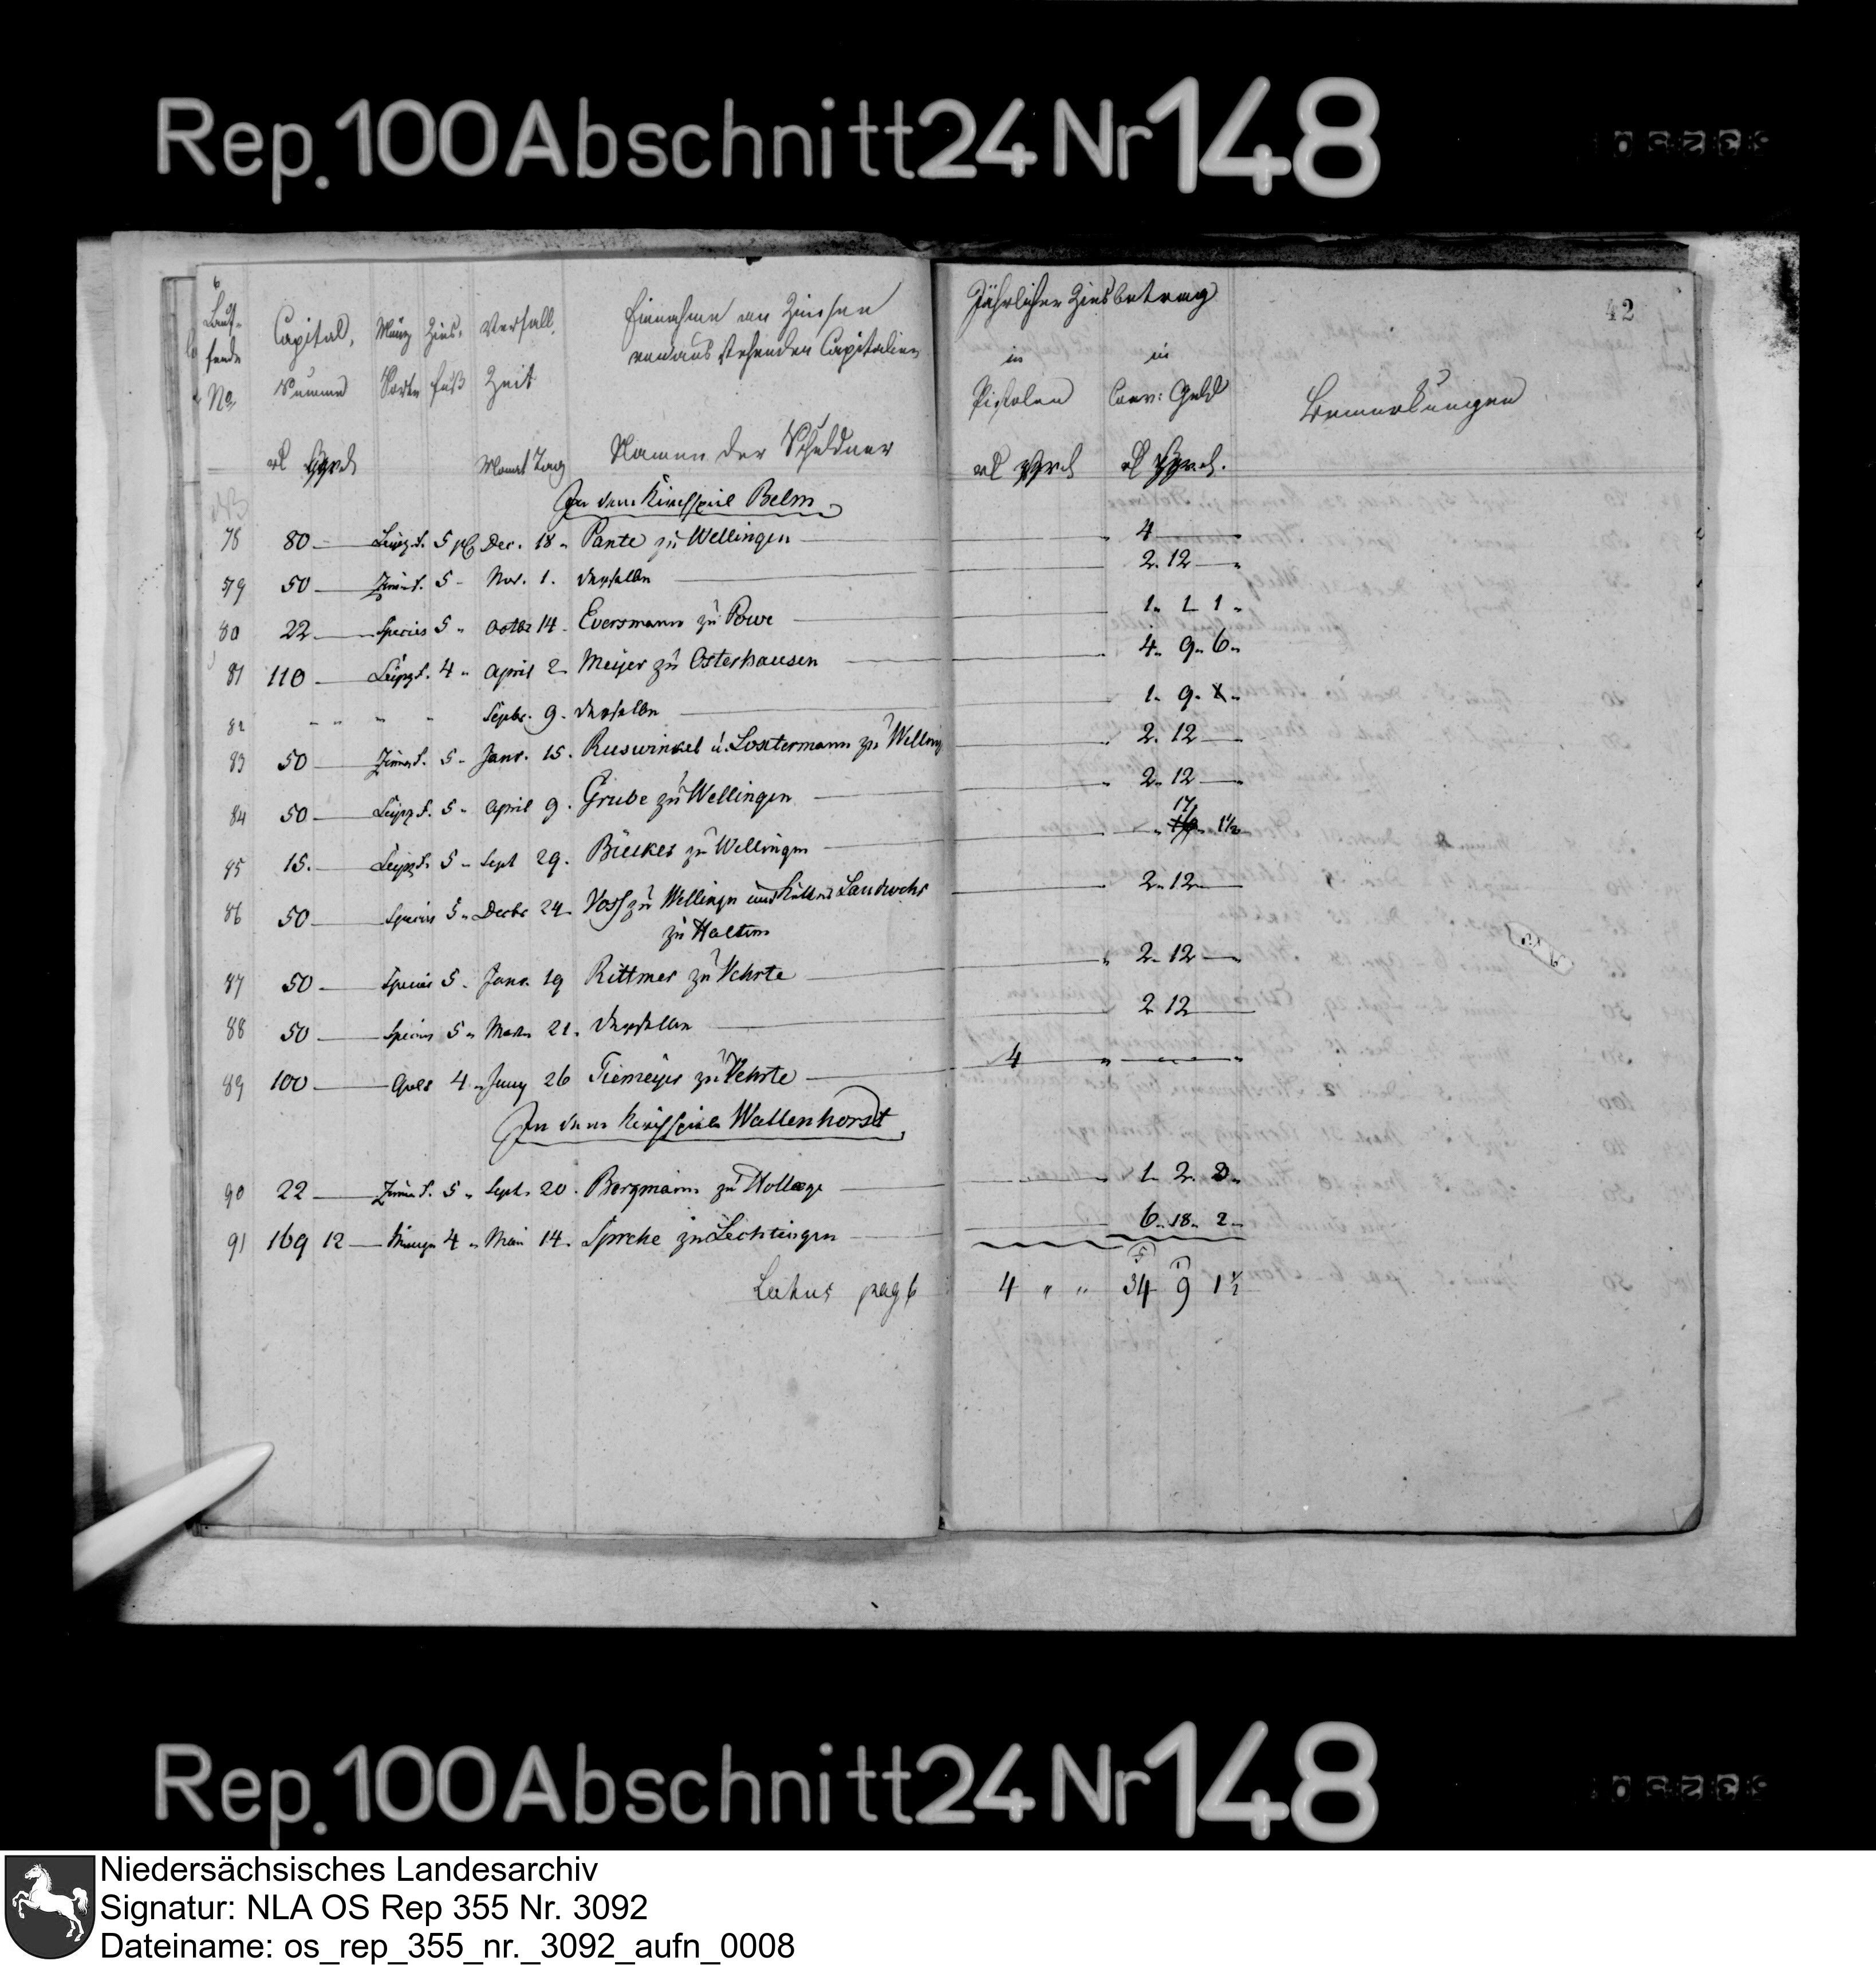 Rep. 100 Abschnitt 24 Nr 148
6
42
Lauf- Capital, Münz Zins- Verfall Einnahme an Zinsen Jährlicher Zinsbetrag
fende Summe Sorten fuß Zeit von ausstehenden Capitalien in in
No. Pistolen Conv: Geld Bemerkungen
Monat Tag Namen der Schuldner
In dem Kirchspiel Belm
78 80 Leipz. f. 5 pC Dec. 18 Pante zu Wellingen 4
79 50 5 Nov. 1. derselbe 2. 12
80 22 Species 5 Octbr 14 Eversmann zu Powe 1. 2 1
81 110 Leipz f. 4 April 2 Meyer zu Osterhausen 4. 9. 6
82 " " " " Septbr. 9. derselbe 1. 9.
83 50 5 Janr. 15. Ruswinkel u. Lostermann zu Welling 2. 12
84 50 Leipz f. 5 April 9. Grube zu Wellingen 2. 12
85 15. Leipz f. 5 Sept 29. Bücker zu Wellingen 17 1½
86 50 Species 5 Decbr 24 Voss zu Wellingen und Landwehr 2. 12
zu Haltern
87 50 Species 5 Janr. 19 Rittmer zu Vehrte 2. 12
88 50 Species 5 21. derselbe 2 12
89 100 Gold 4 Juny 26 Tiemeyer zu Vehrte 4
In dem Kirchspiele Wallenhorst
90 22 5 Sept. 20. Bergmann zu Hollage 1. 2.
91 169 12 4 Mai 14. zu Lechtingen 6. 18. 2
Latus pag 6 4 " " 34 9 1½
Rep. 100 Abschnitt 24 Nr 148
Niedersächsisches Landesarchiv
Signatur: NLA OS Rep 355 Nr. 3092
Dateiname: os_rep_355_nr._3092_aufn_0008